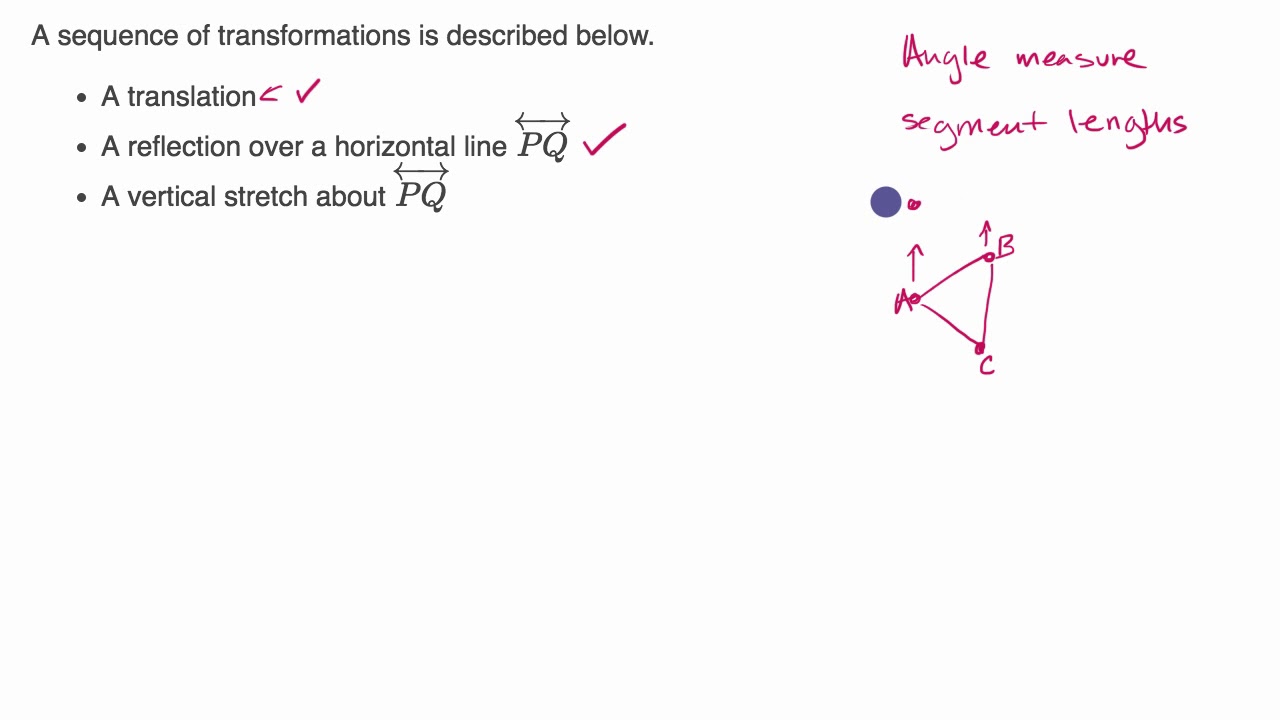 A sequence of transformations is described below.
• A translation
• A reflection over a horizontal line PQ
• A vertical stretch about PQ
Angle measure
segment lengths
B
A
C